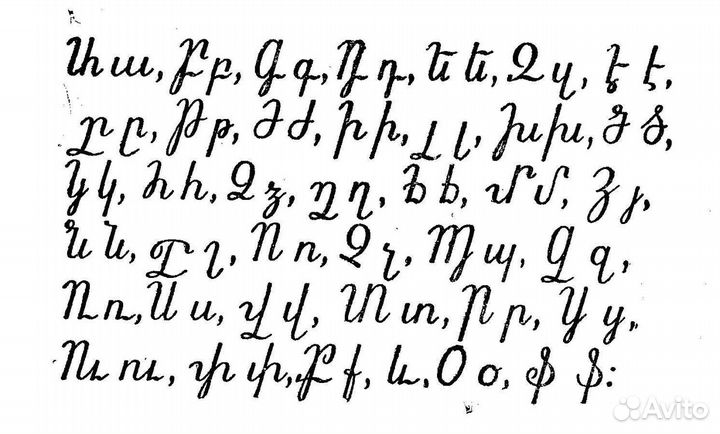 Ա ա, Բ բ, Գ գ, Դ դ, Ե ե, Զ զ, Է է,
Ը ը, Թ թ, Ժ ժ, Ի ի, Լ լ, Խ խ, Ծ ծ,
Կ կ, Հ հ, Ձ ձ, Ղ ղ, Ճ ճ, Մ մ, Յ յ,
Ն ն, Շ շ, Ո ո, Չ չ, Պ պ, Ջ ջ,
Ռ ռ, Ս ս, Վ վ, Տ տ, Ր ր, Ց ց,
Ու ու, Փ փ, Ք ք, և, Օ օ, Ֆ ֆ:
Avito